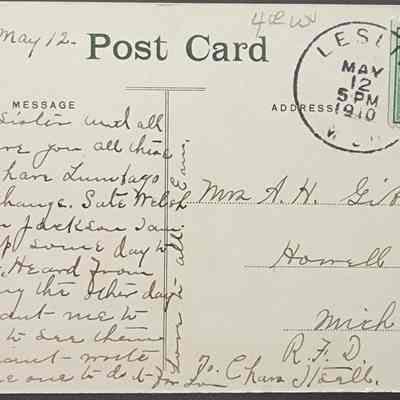 May 12.
Post Card
4
LESL
MAY
12
5 PM
1910
MESSAGE
ADDRESS
Sister and all
are you all these
have Lumbago
change. Sate Welsh
in Jackson Jan
some day to
Heard From
the other day
want me to
to see them
want write
one to do it For
Love to all. Eani
Mrs A. H. Gi
Howell
Mich
R.F.D.
To Chas